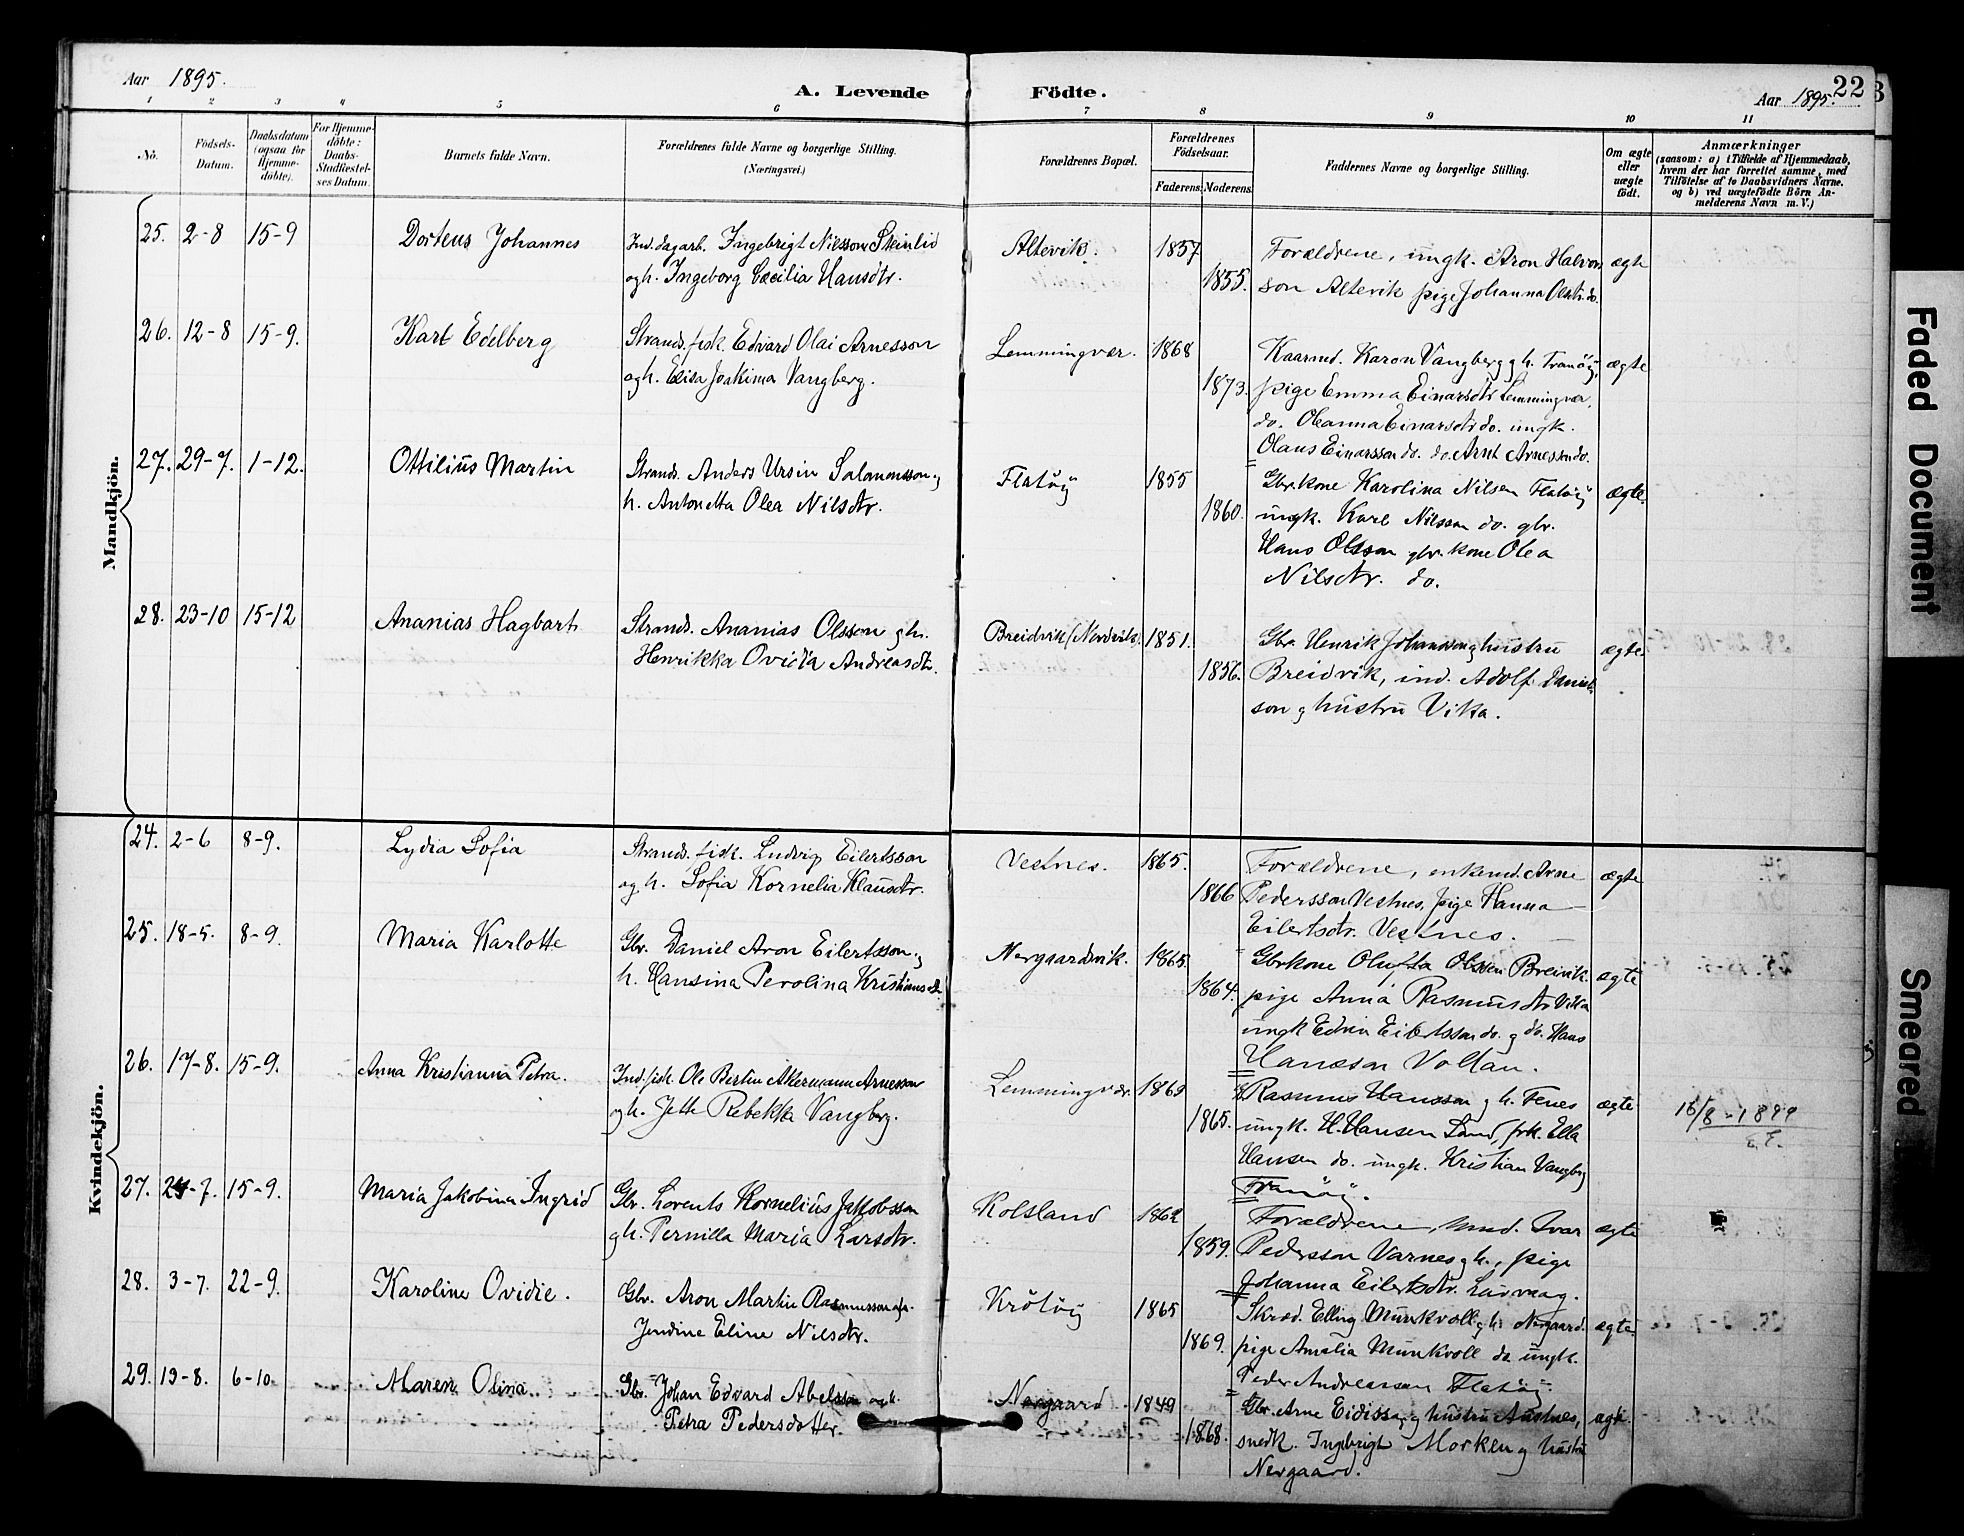 Aar 1895.
A. Levende Födte.
22
Aar 1895.
1 2 3 4 5 6 7 8 9 10 11
No.
Födsels-Datum.
Daabsdatum (ogsaa for Hjemme-döbte).
For Hjemme-döbte: Daabs-Stadfæstel-ses Datum.
Barnets fulde Navn.
Forældrenes fulde Navne og borgerlige Stilling. (Næringsvei.)
Forældrenes Bopæl.
Forældrenes Födselsaar.
Faderens. Moderens.
Faddernes Navne og borgerlige Stilling.
Om ægte eller uægte födt.
Anmærkninger
(saasom: a) i Tilfælde af Hjemmedaab,
hvem der har forrettet samme, med
Tilföielse af to Daabsvidners Navne.
og b) ved uægtefödte Börn An-
melderens Navn m. V.)
Mandkjön.
25. 2-8 15-9 Dorteus Johannes
Ind. dagarb. Ingebrigt Nilsson Skinlid
ogh. Ingeborg Cæcilia Hansdtr.
Altevik. 1857 1855.
Forældrene, ungk. Aron Halvor
son Altevik pige Johanna Olsdtr. do.
ægte
26. 12-8 15-9. Karl Edelberg
Strands. fisk. Edvard Olai Arnesson
ogh. Elisa Joakima Vangberg.
Lemmingvær. 1868 1873.
Kaarmd. Karon Vangberg g h. Tranöy,
pige Emma Einarsdtr Lemmingvær,
do. Oleanna Einarsdtr do. ungk.
Olaus Einarsson do. do Arnt Arnesson do.
ægte
27. 29-7. 1-12. Ottilius Martin
Strands. Anders Ursin Salomonsson g
h. Antonetta Olea Nilsdtr.
Flatöy 1855 1860.
Gbr.kone Karolina Nilsen Flatöy
ungk. Karl Nilsson do. gbr.
Hans Olsson gbr. kone Olea
Nilsdtr. do.
ægte.
28. 23-10 15-12 Ananias Hagbart
Strands. Ananias Olsson g h.
Henrikka Ovidia Andreasdtr.
Breidvik (Nordvik). 1851. 1856.
Gbr. Henrik Johansson g hustru
Breidvik, ind. Adolf Daniel-
son g hustru Vika.
ægte
Kvindekjön.
24. 2-6 8-9. Lydia Sofia
Strands. fisk. Ludvig Eilertsson
og h. Sofia Kornelia Klausdtr.
Vestnes. 1865. 1866
Forældrene, enkemd. Arne
Pedersson Vestnes, pige Hanna
Eilertsdtr. Vestnes.
ægte
25. 18-5. 8-9. Maria Karlotte
Gbr. Daniel Aron Eilertsson g
h. Hansina Perolina Kristiansdtr
Nergaardvik. 1865. 1864.
Gbrkone Olufta Olssen Breivik
pige Anna Rasmusdtr Vika
ungk Edvin Eilertsson do. g do. Hans
Hansson Voltan.
ægte
26. 17-8. 15-9. Anna Kristianna Petra.
Ind. fisk. Ole Bertin Akermann Arnesson
ogh. Jette Rebekka Vangberg.
Lemmingvær. 1863 1865.
Rasmus Hansson g h. Fenes
ungk. H. Hansen Sand, frk. Ella
Hansen do. ungk. Kristian Vangberg
Tranöy.
ægte
27. 24-7. 15-9. Maria Jakobina Ingrid
Gbr. Lorents Kornelius Jakobsson
g h. Pernilla Maria Larsdtr.
Kolsland 1862 1859.
Forældrene, Ivar
Pedersson Varnes g h., pige
Johanna Eilertsdtr. Laurvaag.
ægte
28. 3-7. 22-9. Karoline Ovidie.
Gbr. Aron Martin Rasmusson
Jendine Eline Nilsdtr.
Krötöy 1865 1869.
Skræd. Elling Munkvoll g h. Nergaard.
pige Amalia Munkvoll do ungk.
Peder Andreassen Flatöy.
ægte
29. 19-8. 6-10. Maren Olina
Gbr. Johan Edvard Abelsson og h.
Petra Pedersdotter.
Nergaard 1849 1868.
Gbr. Arne g hustru Austnes,
snedk. Ingebrigt Morken g hustru
Nergaard.
ægte
Faded Document
Smeared